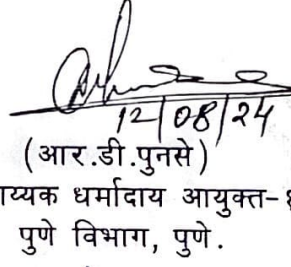 12/08/24
(आर.डी.पुनसे)
धर्मादाय आयुक्त-
पुणे विभाग, पुणे.